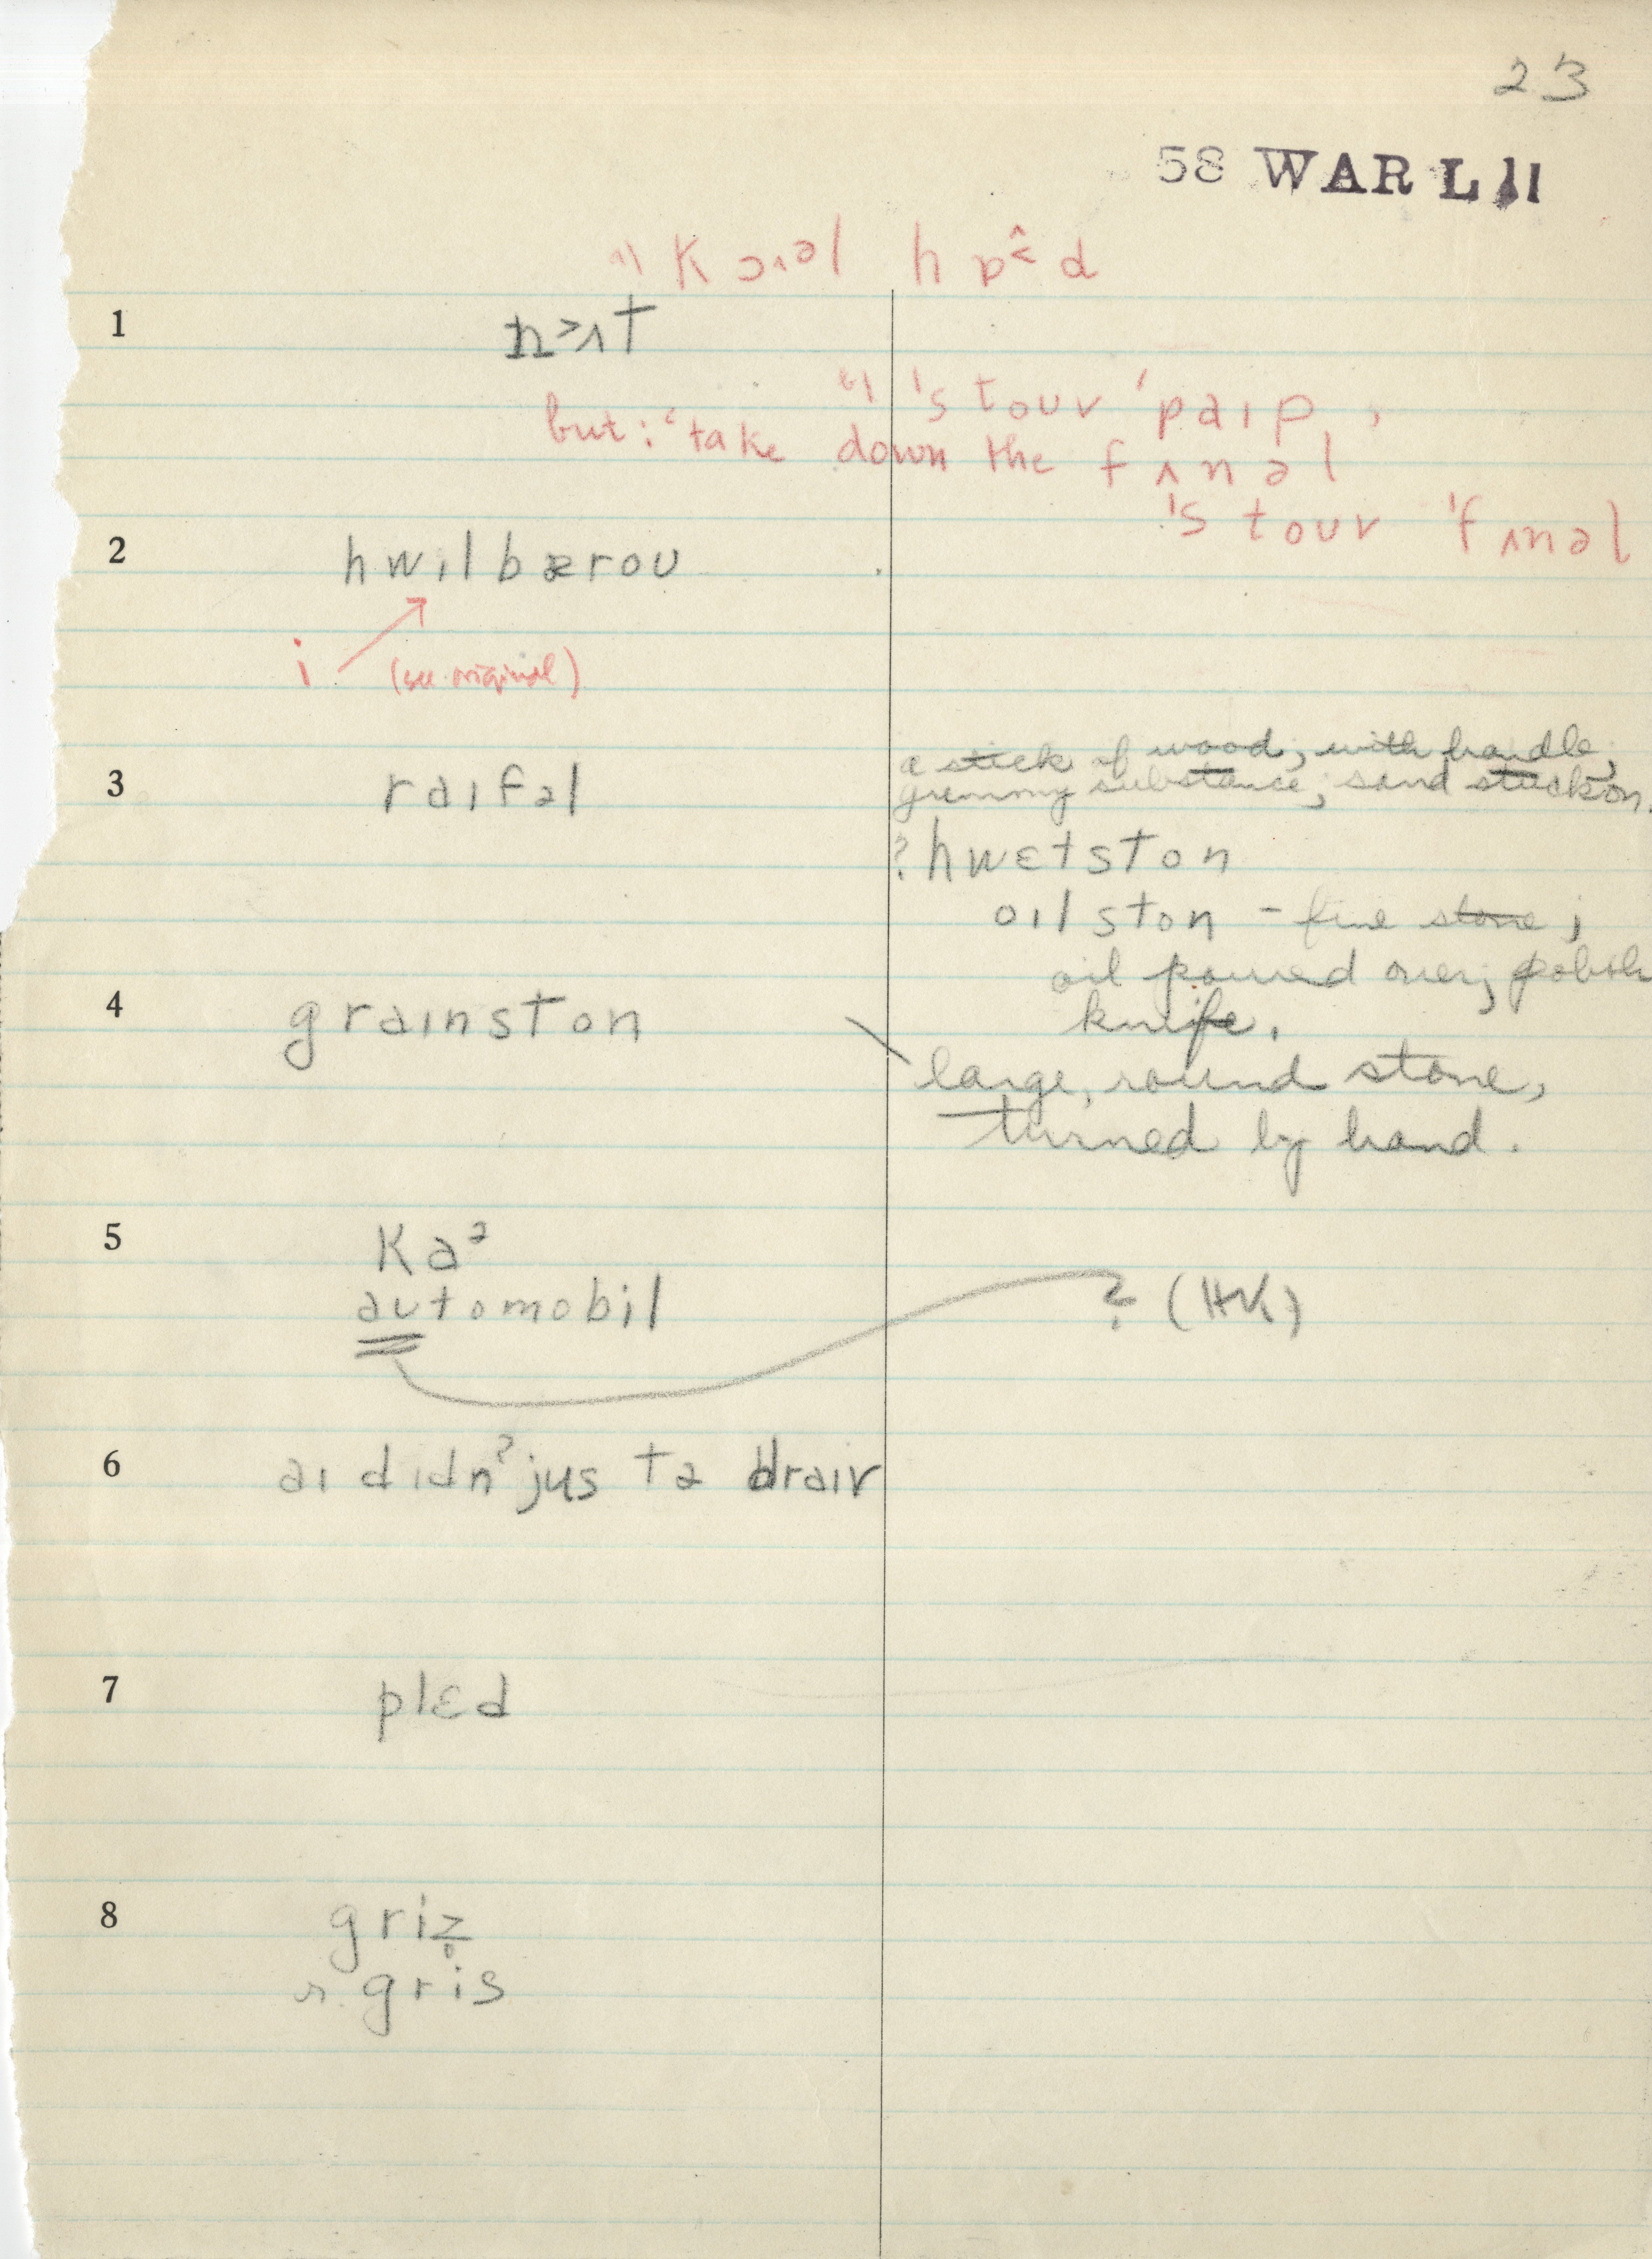 23
58 WAR L 11
a) K ɔɪəl h ɒ˂d
1 n˃ʌt
b) 'stouv 'paɪp,
but: 'take down the fʌnəl
'stouv 'fʌnəl
2 hwilbærou
i (see original)
a stick of wood; with handle;
3 raɪfəl gummy substance; sand stuck on.
? hwɛtston
oɪlston – fine stone;
oil poured over; polish
4 graɪnston knife.
large, round stone,
turned by hand.
5 kaᵊ
automobil ? (HK)
6 aɪ dɪdnˀ jus tə draɪv
7 plɛd
8 griz̥
r. gris